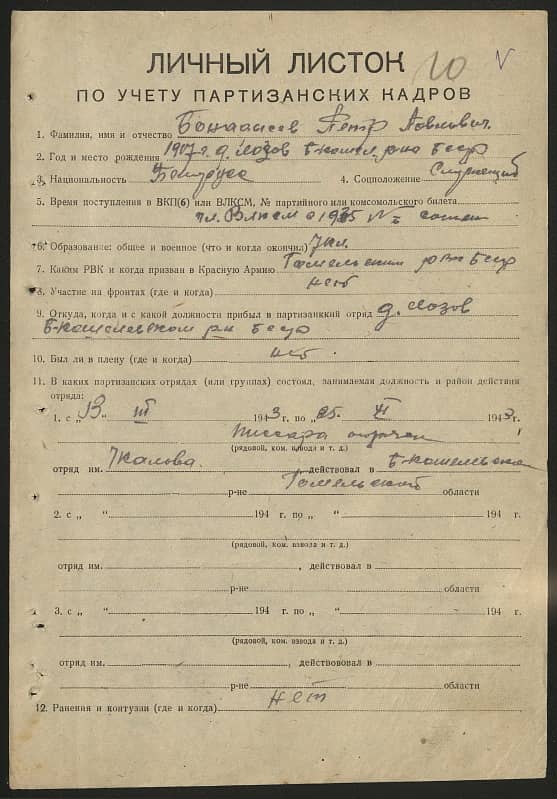 ЛИЧНЫЙ ЛИСТОК
10
ПО УЧЕТУ ПАРТИЗАНСКИХ КАДРОВ
1. Фамилия, имя и отчество Петр Павлович.
2. Год и место рождения 1907 г. д. Лозов Б-кошел. р-на Бсср
3. Национальность Беларус 4. Соцположение Служащий
5. Время поступления в ВКП(б) или ВЛКСМ, № партийного или комсомольского билета
чл. Влксм с 1925 №
6. Образование: общее и военное (что и когда окончил) 7 кл.
7. Каким РВК и когда призван в Красную Армию Гомельским рвк Бсср
8. Участие на фронтах (где и когда) нет
9. Откуда, когда и с какой должности прибыл в партизанский отряд д. Лозов
Б-кошелевском р-н Бсср
10. Был ли в плену (где и когда) нет
11. В каких партизанских отрядах (или группах) состоял, занимаемая должность и район действия
отряда:
1. с „ 13 “ III 1943 г. по „ 25. XI 1943 г.
писаря
(рядовой, ком. взвода и т. д.)
отряд им. Чкалова. действовал в Б-кошелевском
р-не Гомельской области
2. с „ “ 194 г. по „ “ 194 г.
(рядовой, ком. взвода и т. д.)
отряд им. , действовал в
р-не области
3. с „ “ 194 г. по „ “ 194 г.
(рядовой, ком. взвода и т. д.)
отряд им. , действововал в
р-не области
12. Ранения и контузии (где и когда) нет